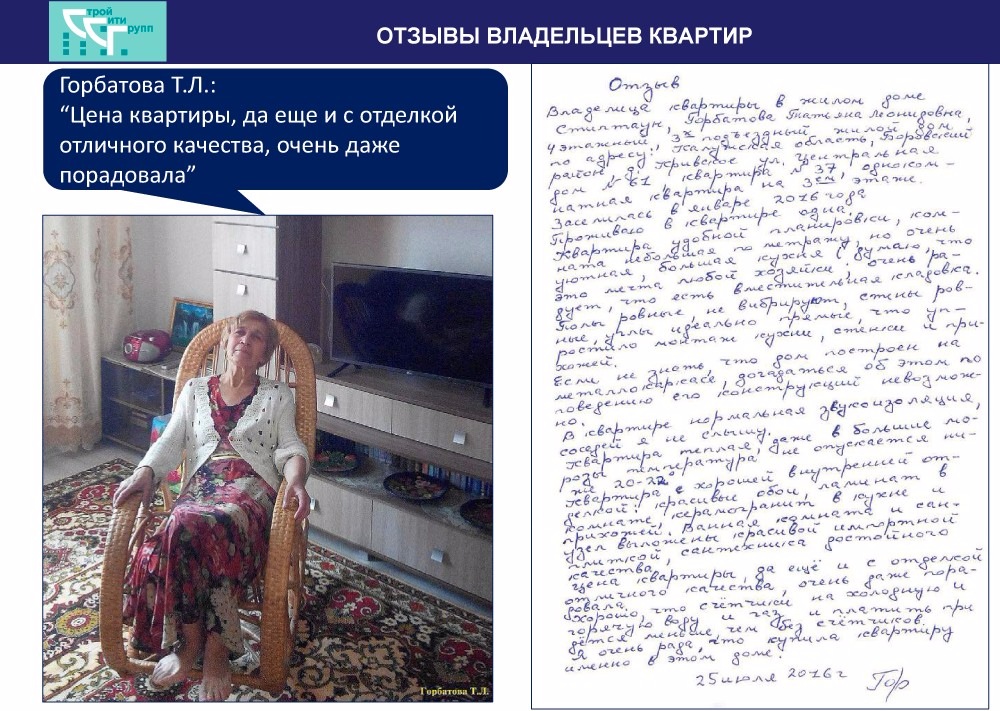 Строй
Сити
Групп
ОТЗЫВЫ ВЛАДЕЛЬЦЕВ КВАРТИР
Горбатова Т.Л.:
“Цена квартиры, да еще и с отделкой
отличного качества, очень даже
порадовала”
Горбатова Т.Л.
Отзыв
Владелица квартиры в жилом доме
Стилтаун, Горбатова Татьяна Леонидовна,
4 этажный, 3х подъездный жилой дом
по адресу: Калужская область, Боровский
район, д. Кривское ул, Центральная
дом №61 квартира №37, одноком-
натная квартира на 3ем, этаже.
Заселилась в январе 2016 года
Проживаю в квартире одна.
Квартира удобной планировки, ком-
ната небольшая по метражу, но очень
уютная, большая кухня (думаю, что
это мечта любой хозяйки, очень ра-
дует, что есть вместительная кладовка.
Полы ровные, не вибрируют, стены ров-
ные, углы идеально прямые, что уп-
ростило монтаж кухни, стенки и при-
хожей.
Если не знать, что дом построен на
металлокаркасе, догадаться об этом по
поведению его конструкций невозмож-
но.
В квартире нормальная звукоизоляция,
соседей я не слышу.
Квартира теплая, даже в большие мо-
розы температура не опускается ни-
же 20-22
Квартира с хорошей внутренней от-
делкой: красивые обои, ламинат в
комнате, керамогранит в кухне и
прихожей. Ванная комната и сан-
узел выложены красивой импортной
плиткой, сантехника достойного
качества.
Цена квартиры, да ещё и с отделкой
отличного качества, очень даже пора-
довала.
Хорошо, что счётчики на холодную и
горячую воду и газ и платить при-
дётся меньше чем без счётчиков.
Я очень рада, что купила квартиру
именно в этом доме.
25 июля 2016 г Гор